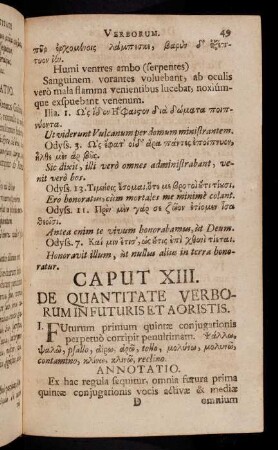 VERBORUM. 49
πῦρ ἐρχομένοις λάμπεται, βαρὺν δ' ἐξέπ-
τυον ἰόν.
Humi ventres ambo (serpentes)
Sanguinem vorantes voluebant, ab oculis
verò mala flamma venientibus lucebat, noxiúmque
exspuebant venenum.
Ilia. 1. Ὡς ἴδον Ἥφαιστον διὰ δώματα ποιπ-
νύοντα.
Ut viderunt Vulcanum per domum ministrantem.
Odyss. 3. Ὣς ἔφατ' οἱ δ' ἄρα πάντες ἐποίπνυον,
ἦλθε μὲν ἂρ βῦς.
Sic dixit, illi verò omnes administrabant, ve-
nit verò bos.
Odyss. 13. βροτοὶ ὔτι τίυσι.
Ero honoratus, cùm mortales me minimè colant.
Odyss. 11. Πρὶν μὲν γάρ σε ζωὸν ἐτίομεν ἶσα
θεοῖσι.
Antea enim te vivum honorabamus, ut Deum.
Odyss. 7. Καί μιν ἔτισ', ὡς ὔτις ἐπὶ χθονὶ τίεται.
Honoravit illum, ut nullus alius in terra hono-
ratur.
CAPUT XIII.
DE QUANTITATE VERBO-
RUM IN FUTURIS ET AORISTIS.
I. FUturum primum quintæ conjugationis
perpetuò corripit penultimam. Ψάλλω,
ψαλῶ, psallo, αἴρω, ἀρῶ, tollo, μολύνω, μολυνῶ,
contamino, κλίνω, κλινῶ, reclino.
ANNOTATIO.
Ex hac regula sequitur, omnia futura prima
quintæ conjugationis vocis activæ & mediæ
D omnium